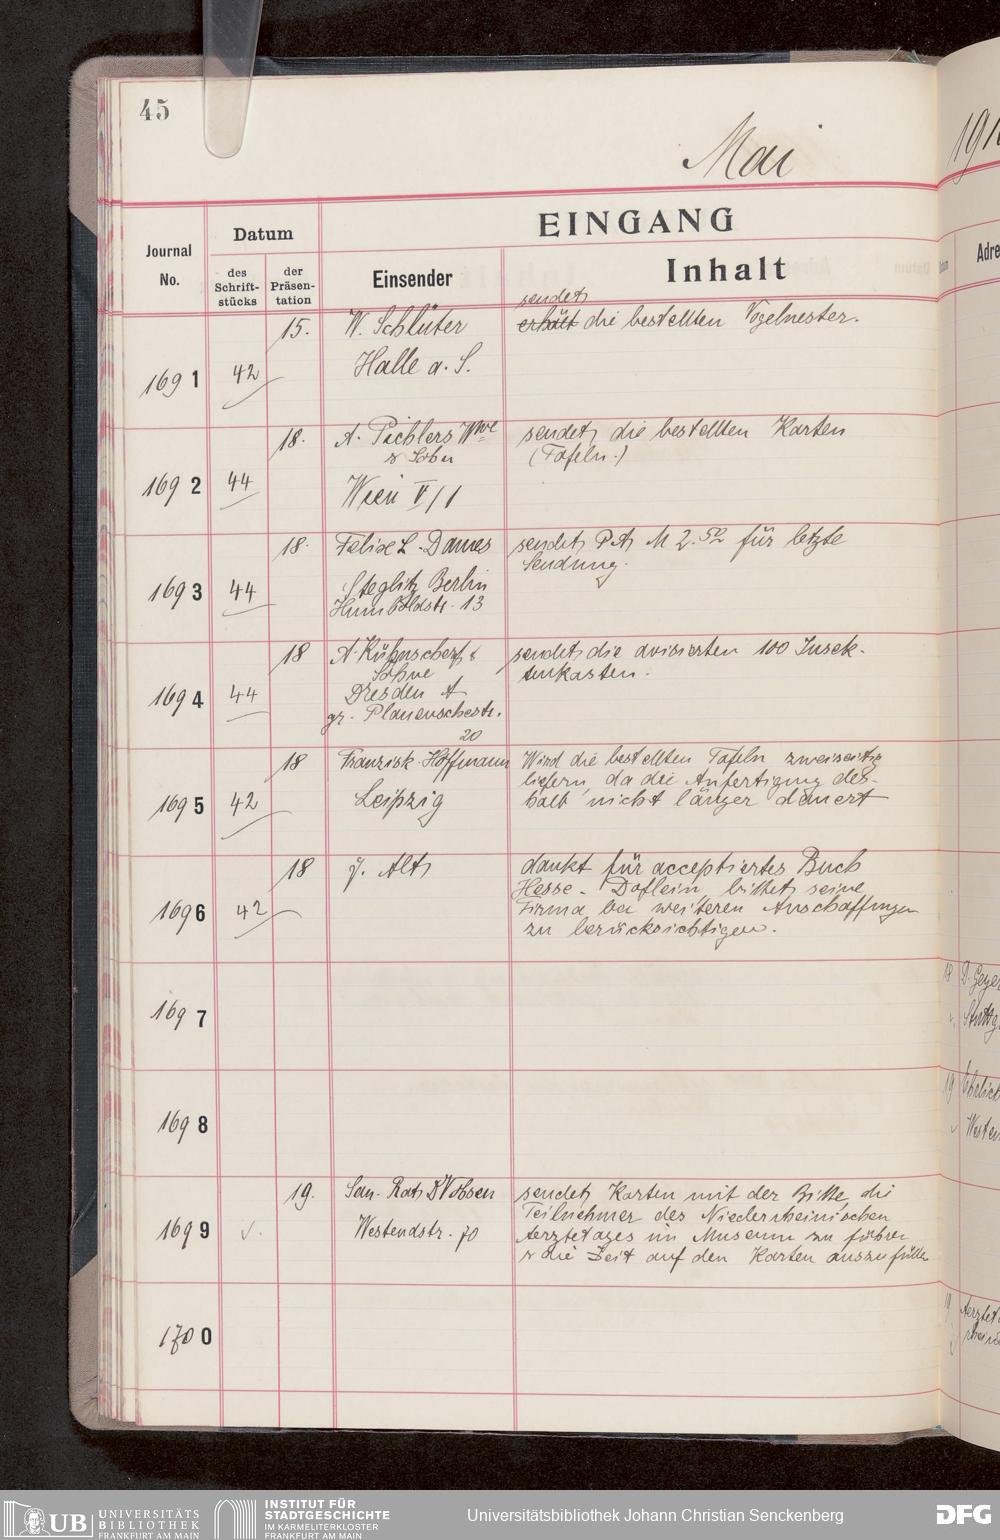 45
Mai
191
EINGANG
Journal
No.
Datum
des
Schrift-
stücks
der
Präsen-
tation
Einsender
Inhalt
Adre
1691
42
15.
W. Schlüter
Halle a. S.
sendet
erhält die bestellten Vogelnester.
1692
44
18.
A. Pichlers Wwe
& Sohn
Wien V/1
sendet die bestellten Karten
(Tafeln.)
1693
44
18.
Felix L. Dames
Steglitz Berlin
Humboldstr. 13
sendet P.A. M 2.50 für letzte
Sendung.
1694
44
18
A. Kühnscherf &
Söhne
Dresden A
gr. Plauenschestr.
20
sendet die avisierten 100 Insek-
tenkasten.
1695
42
18
Franzisk. Hoffmann
Leipzig
Wird die bestellten Tafeln zweiseitig
liefern, da die Anfertigung des-
halb nicht länger dauert
1696
42
18
J. Alt
dankt für acceptiertes Buch
Hesse-Doflein, bittet seine
Firma bei weiteren Anschaffungen
zu berücksichtigen.
1697
18 D. Geyer
Stuttg
1698
19 Ehrlich
Westen
1699
19.
San. Rat Dr Vohsen
Westendstr. 70
sendet Karten mit der Bitte, die
Teilnehmer des Niederrheinischen
Aerztetages im Museum zu führen
& die Zeit auf den Karten auszufüllen
1700
19 Aerztet
rhein
UB
UNIVERSITÄTS
BIBLIOTHEK
FRANKFURT AM MAIN
INSTITUT FÜR
STADTGESCHICHTE
IM KARMELITERKLOSTER
FRANKFURT AM MAIN
Universitätsbibliothek Johann Christian Senckenberg
DFG